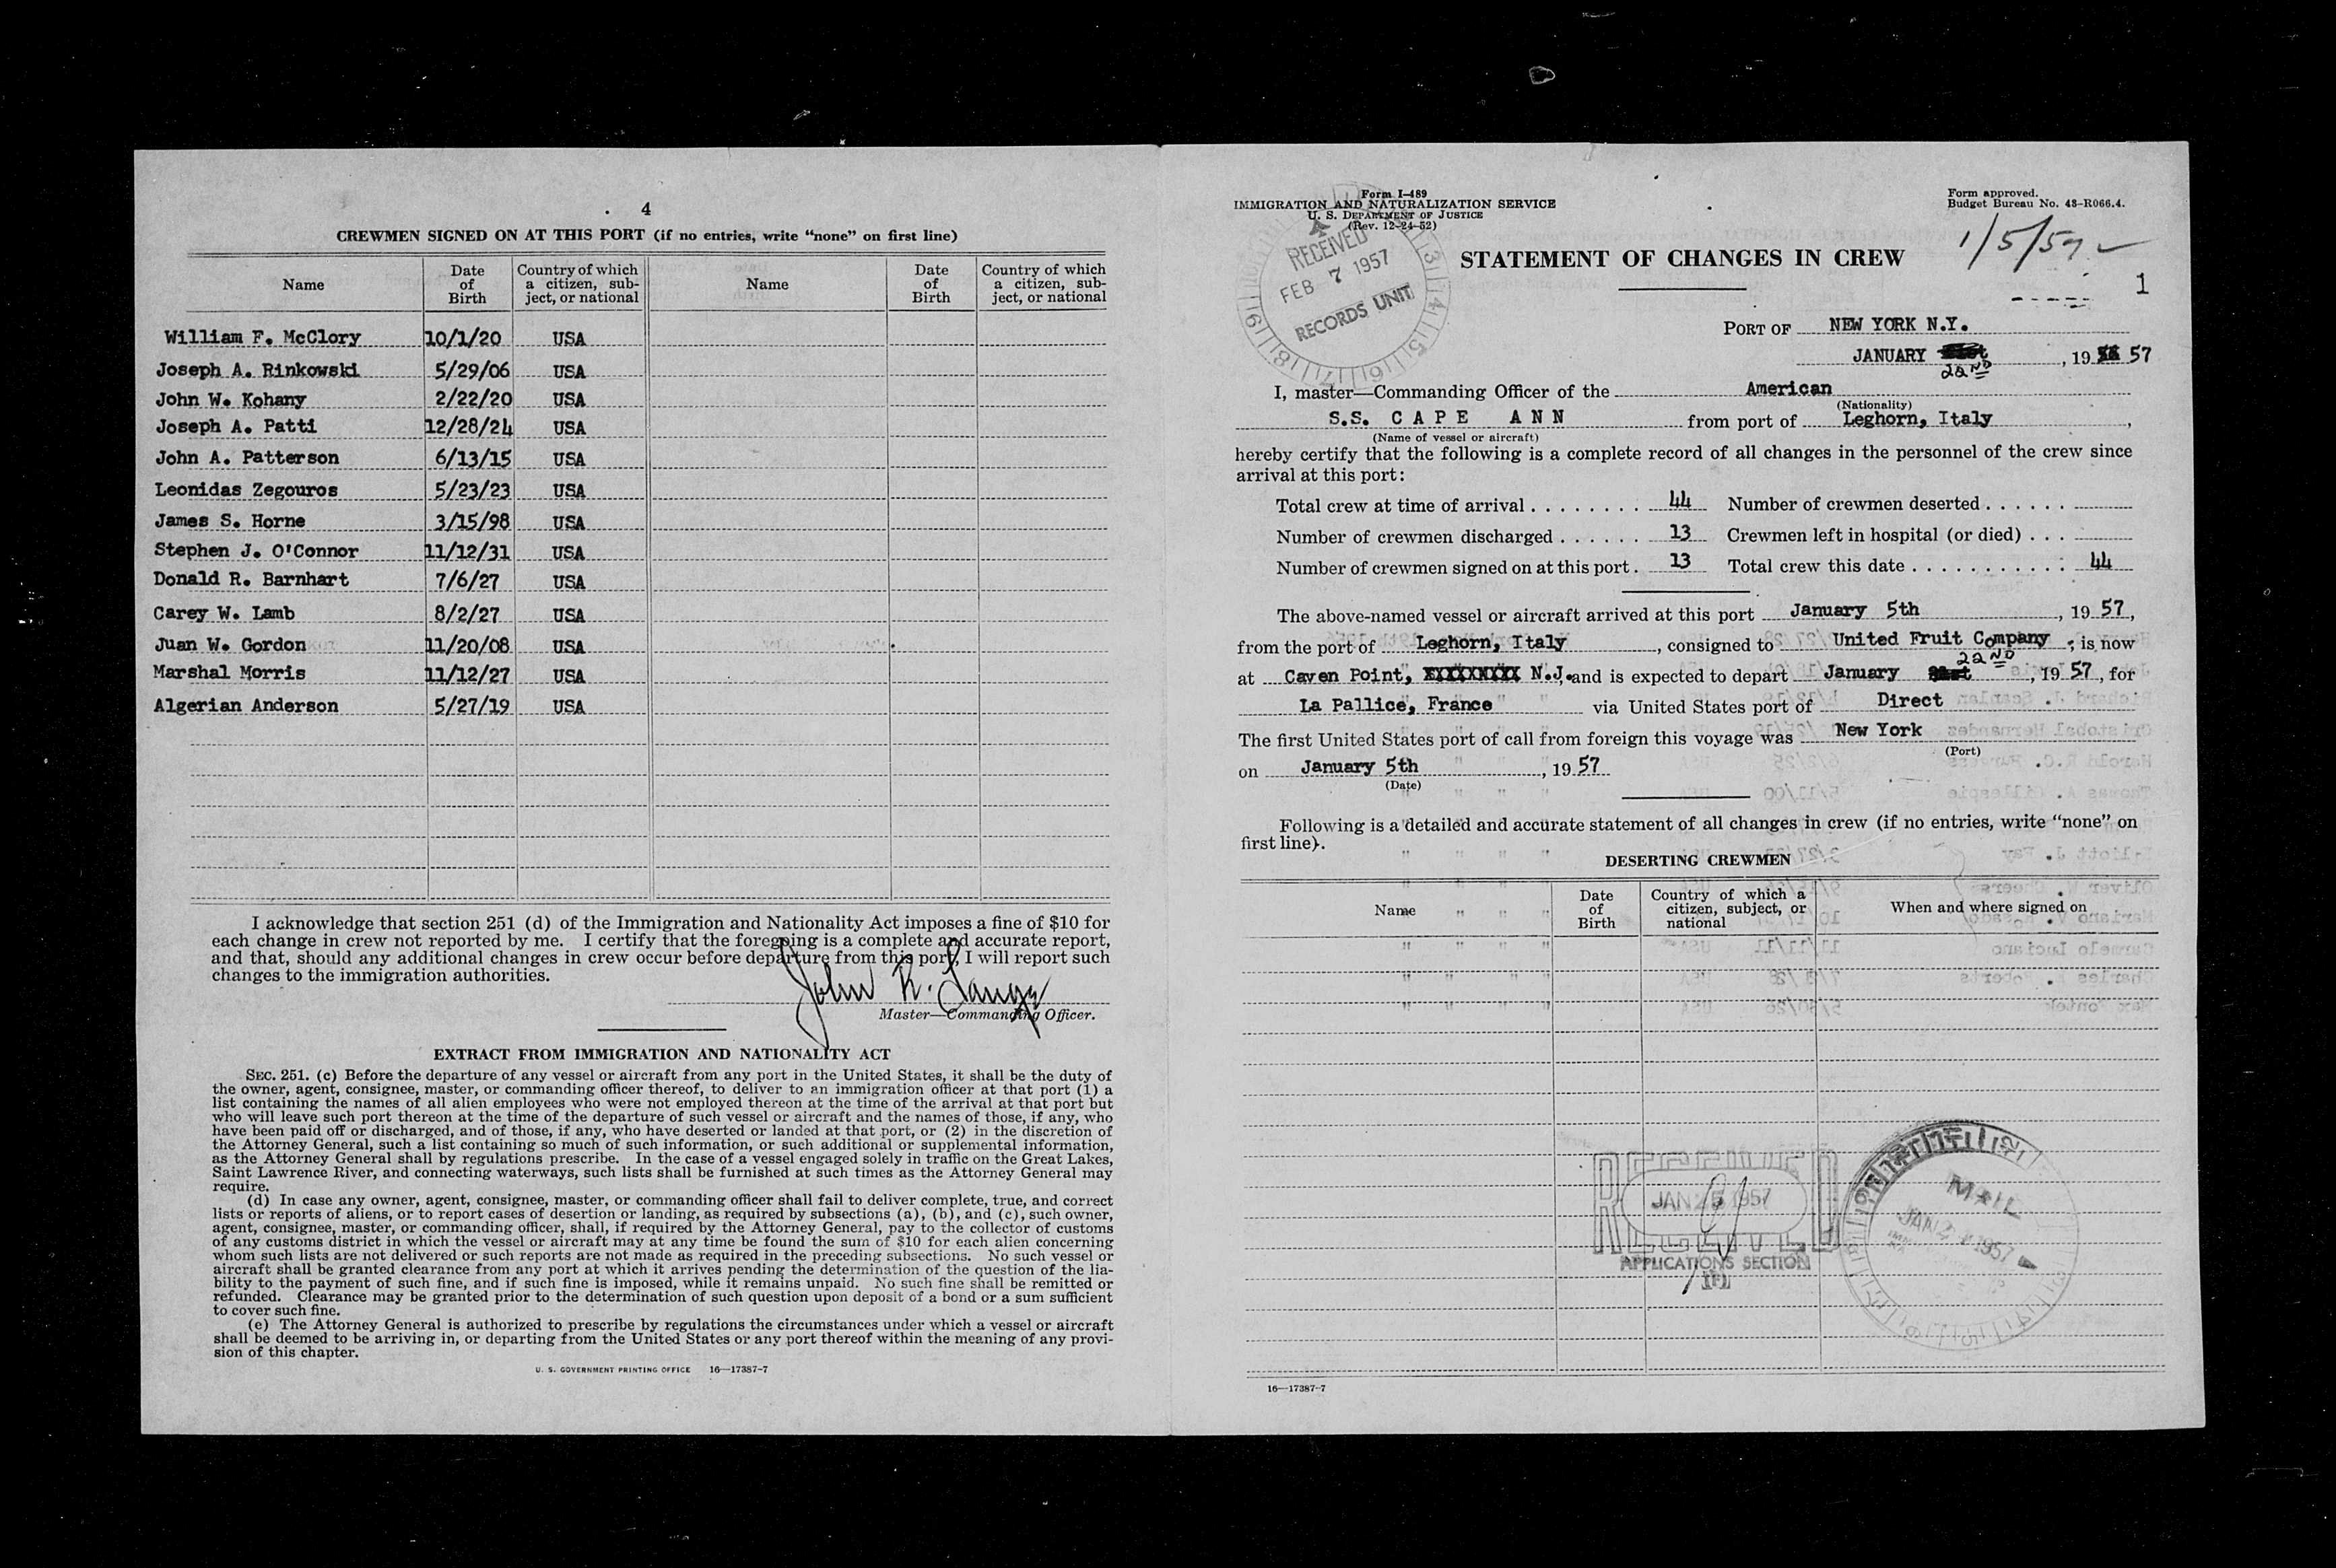 4
CREWMEN SIGNED ON AT THIS PORT (if no entries, write “none” on first line)
Name Date of Birth Country of which a citizen, subject, or national Name Date of Birth Country of which a citizen, subject, or national
William F. McClory 10/1/20 USA
Joseph A. Rinkowski 5/29/06 USA
John W. Kohany 2/22/20 USA
Joseph A. Patti 12/28/24 USA
John A. Patterson 6/13/15 USA
Leonidas Zegouros 5/23/23 USA
James S. Horne 3/15/98 USA
Stephen J. O'Connor 11/12/31 USA
Donald R. Barnhart 7/6/27 USA
Carey W. Lamb 8/2/27 USA
Juan W. Gordon 11/20/08 USA
Marshal Morris 11/12/27 USA
Algerian Anderson 5/27/19 USA
I acknowledge that section 251 (d) of the Immigration and Nationality Act imposes a fine of $10 for
each change in crew not reported by me. I certify that the foregoing is a complete and accurate report,
and that, should any additional changes in crew occur before departure from this port, I will report such
changes to the immigration authorities.
John R. Lange
Master—Commanding Officer.
EXTRACT FROM IMMIGRATION AND NATIONALITY ACT
SEC. 251. (c) Before the departure of any vessel or aircraft from any port in the United States, it shall be the duty of
the owner, agent, consignee, master, or commanding officer thereof, to deliver to an immigration officer at that port (1) a
list containing the names of all alien employees who were not employed thereon at the time of the arrival at that port but
who will leave such port thereon at the time of the departure of such vessel or aircraft and the names of those, if any, who
have been paid off or discharged, and of those, if any, who have deserted or landed at that port, or (2) in the discretion of
the Attorney General, such a list containing so much of such information, or such additional or supplemental information,
as the Attorney General shall by regulations prescribe. In the case of a vessel engaged solely in traffic on the Great Lakes,
Saint Lawrence River, and connecting waterways, such lists shall be furnished at such times as the Attorney General may
require.
(d) In case any owner, agent, consignee, master, or commanding officer shall fail to deliver complete, true, and correct
lists or reports of aliens, or to report cases of desertion or landing, as required by subsections (a), (b), and (c), such owner,
agent, consignee, master, or commanding officer, shall, if required by the Attorney General, pay to the collector of customs
of any customs district in which the vessel or aircraft may at any time be found the sum of $10 for each alien concerning
whom such lists are not delivered or such reports are not made as required in the preceding subsections. No such vessel or
aircraft shall be granted clearance from any port at which it arrives pending the determination of the question of the lia-
bility to the payment of such fine, and if such fine is imposed, while it remains unpaid. No such fine shall be remitted or
refunded. Clearance may be granted prior to the determination of such question upon deposit of a bond or a sum sufficient
to cover such fine.
(e) The Attorney General is authorized to prescribe by regulations the circumstances under which a vessel or aircraft
shall be deemed to be arriving in, or departing from the United States or any port thereof within the meaning of any provi-
sion of this chapter.
U. S. GOVERNMENT PRINTING OFFICE 16—17387-7
Form I-489
IMMIGRATION AND NATURALIZATION SERVICE
U. S. DEPARTMENT OF JUSTICE
(Rev. 12-24-52)
Form approved.
Budget Bureau No. 43-R066.4.
RECEIVED
FEB 7 1957
RECORDS UNIT
1/5/57
STATEMENT OF CHANGES IN CREW
1
PORT OF NEW YORK N.Y.
JANUARY 22ND, 19 57
I, master—Commanding Officer of the American
(Nationality)
S.S. CAPE ANN from port of Leghorn, Italy,
(Name of vessel or aircraft)
hereby certify that the following is a complete record of all changes in the personnel of the crew since
arrival at this port:
Total crew at time of arrival 44 Number of crewmen deserted
Number of crewmen discharged 13 Crewmen left in hospital (or died)
Number of crewmen signed on at this port. 13 Total crew this date 44
The above-named vessel or aircraft arrived at this port January 5th, 19 57,
from the port of Leghorn, Italy, consigned to United Fruit Company; is now
at Caven Point, N.J. and is expected to depart January 22ND, 19 57, for
La Pallice, France via United States port of Direct
The first United States port of call from foreign this voyage was New York
(Port)
on January 5th, 19 57
(Date)
Following is a detailed and accurate statement of all changes in crew (if no entries, write “none” on
first line).
DESERTING CREWMEN
Name Date of Birth Country of which a citizen, subject, or national When and where signed on
RECEIVED
JAN 25 1957
APPLICATIONS SECTION
MAIL
JAN 24 1957
16—17387-7